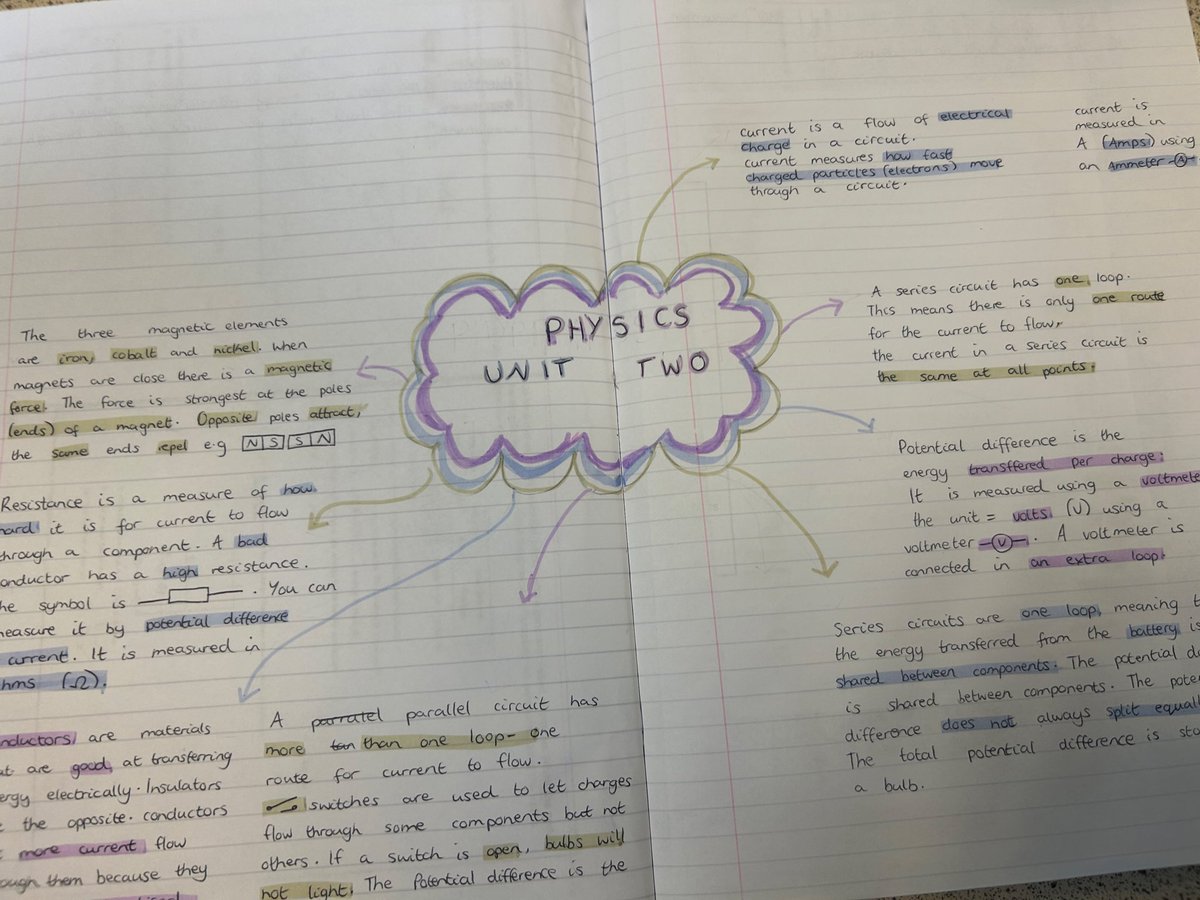 PHYSICS
UNIT TWO
current is a flow of electrical
charge in a circuit.
current measures how fast
charged particles (electrons) move
through a circuit.
current is
measured in
A (Amps) using
an Ammeter -A-
A series circuit has one loop.
This means there is only one route
for the current to flow,
the current in a series circuit is
the same at all points.
Potential difference is the
energy transffered per charge.
It is measured using a voltmete
the unit = volts. (V) using a
voltmeter -V-. A voltmeter is
connected in an extra loop.
Series circuits are one loop, meaning
the energy transferred from the battery is
shared between components. The potential
is shared between components. The
difference does not always split
The total potential difference is
a bulb.
The three magnetic elements
are iron, cobalt and nickel. When
magnets are close there is a magnetic
force. The force is strongest at the poles
(ends) of a magnet. Opposite poles attract,
the same ends repel e.g N S S N
Resistance is a measure of how
hard it is for current to flow
through a component. A bad
conductor has a high resistance.
he symbol is . You can
measure it by potential difference
current. It is measured in
hms (Ω).
nductors are materials
at are good at transferring
ergy electrically. Insulators
the opposite. conductors
more current flow
ough them because they
A parratel parallel circuit has
more tan than one loop- one
route for current to flow.
switches are used to let charges
flow through some components but not
others. If a switch is open, bulbs will
not light. The Potential difference is the